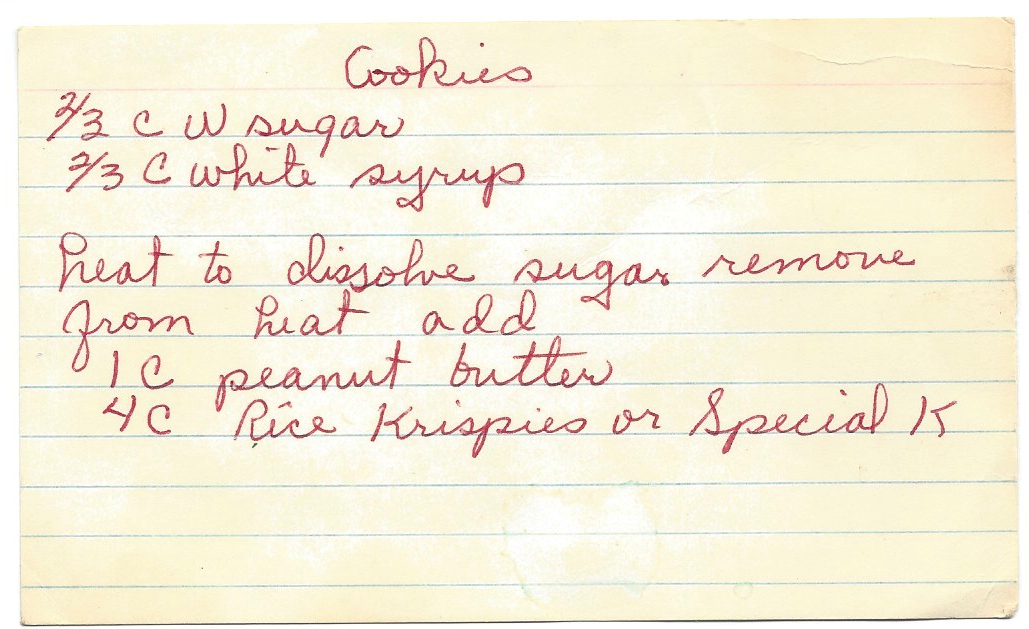 Cookies
2/3 C W sugar
2/3 C white syrup
heat to dissolve sugar remove
from heat add
1 C peanut butter
4 C Rice Krispies or Special K